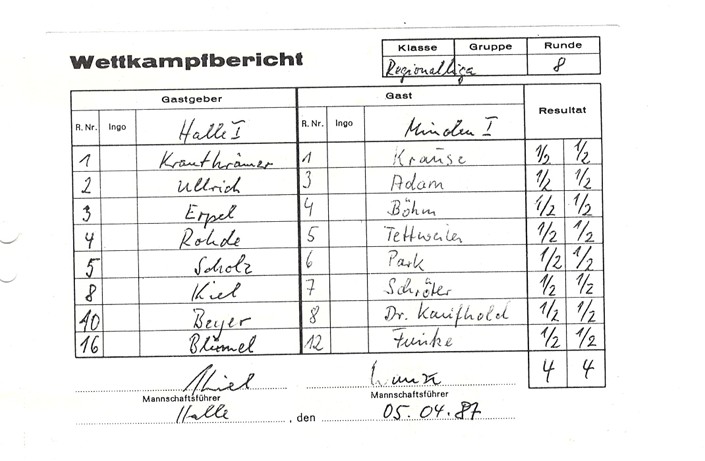 Wettkampfbericht
Klasse Gruppe Runde
Regionalliga 8
Gastgeber Gast Resultat
R. Nr. Ingo Halle I R. Nr. Ingo Minden I
1 Krauthrämer 1 Krause 1/2 1/2
2 Ullrich 3 Adam 1/2 1/2
3 Erpel 4 Böhm 1/2 1/2
4 Rohde 5 Tettweiler 1/2 1/2
5 Scholz 6 Park 1/2 1/2
8 Kiel 7 Schröter 1/2 1/2
10 Beyer 8 Dr. Kaufhold 1/2 1/2
16 Blümel 12 Funke 1/2 1/2
4 4
Kiel
Mannschaftsführer Mannschaftsführer
Halle , den 05.04.87